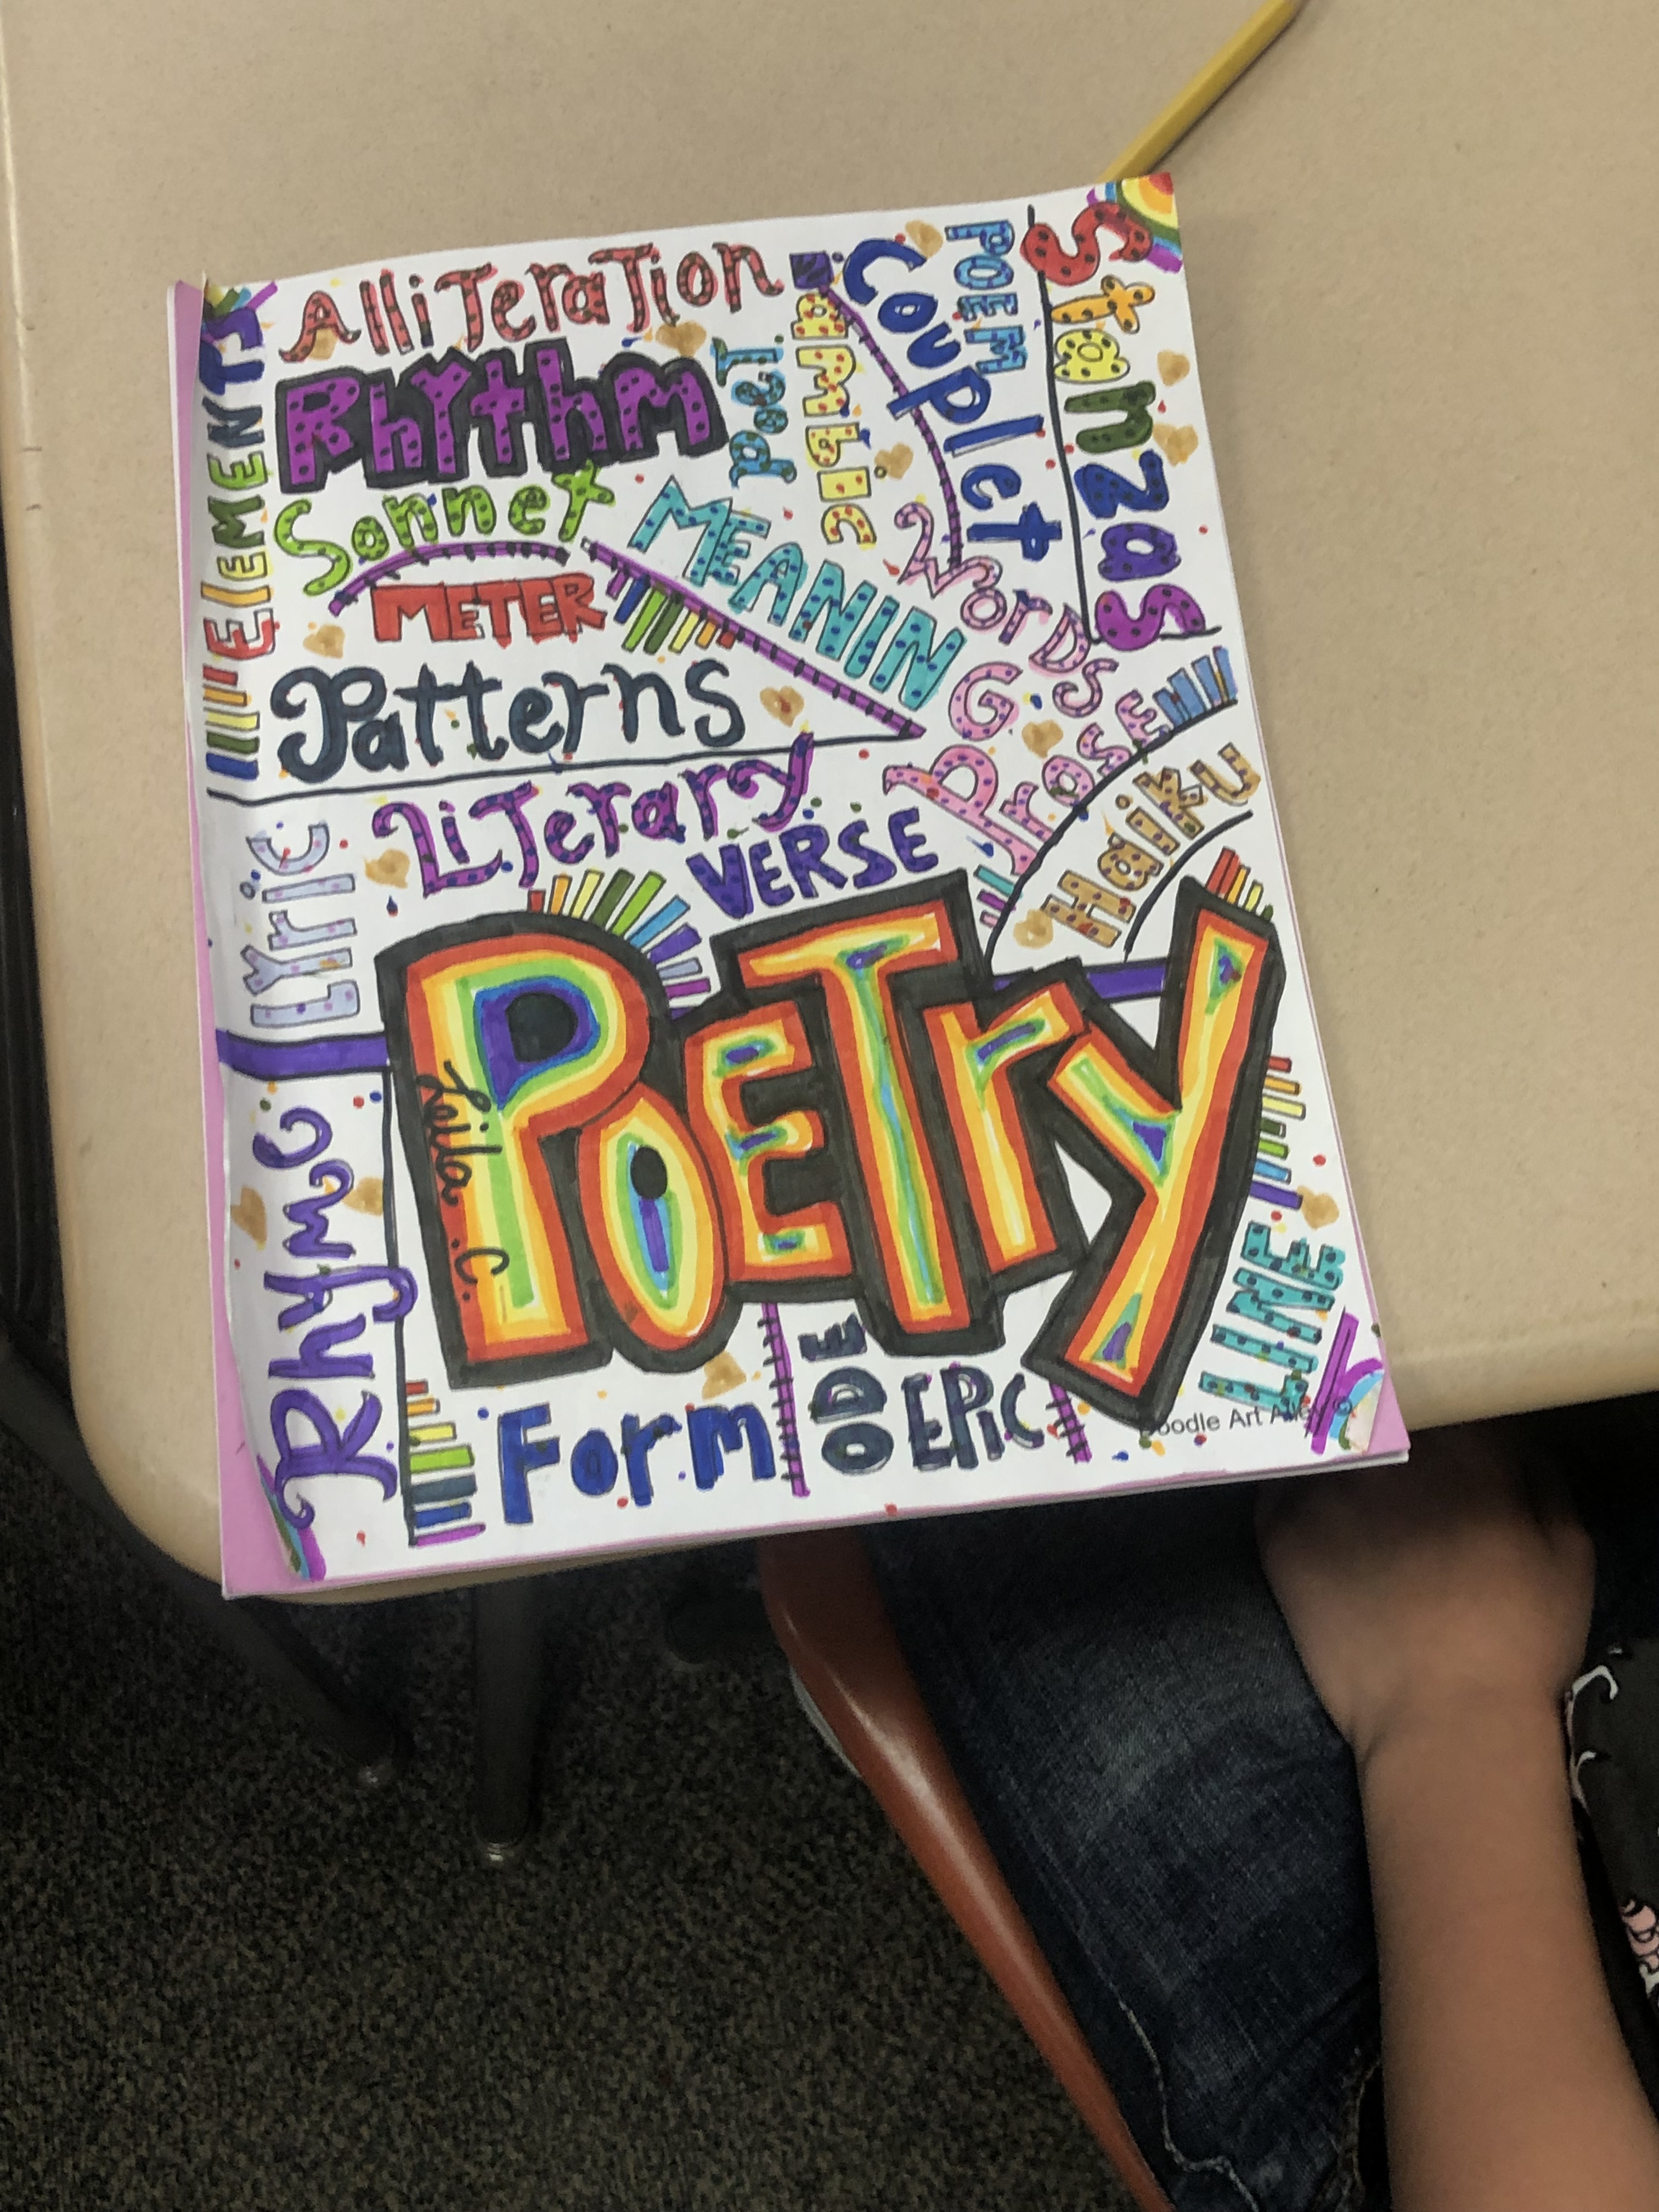 Stanzas
POEM
Couplet
AlliTeraTion
Iambic
Poet
Rhythm
ElEMENTS
Sonnet
MEANING
Words
METER
Patterns
Prose
Haiku
LiTerary
VERSE
Lyric
POETrY
Leila. C.
Rhyme
LINE
ODE
EPiC
Form
Doodle Art Alley ©